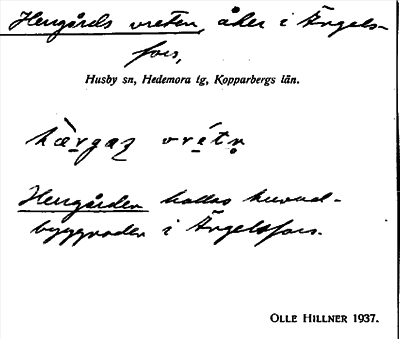 Herrgårds vreten, åker i Ängels-
fors,
Husby sn, Hedemora tg, Kopparbergs län.
Herrgården kallas huvud-
byggnaden i Ängelsfors.
OLLE HILLNER 1937.